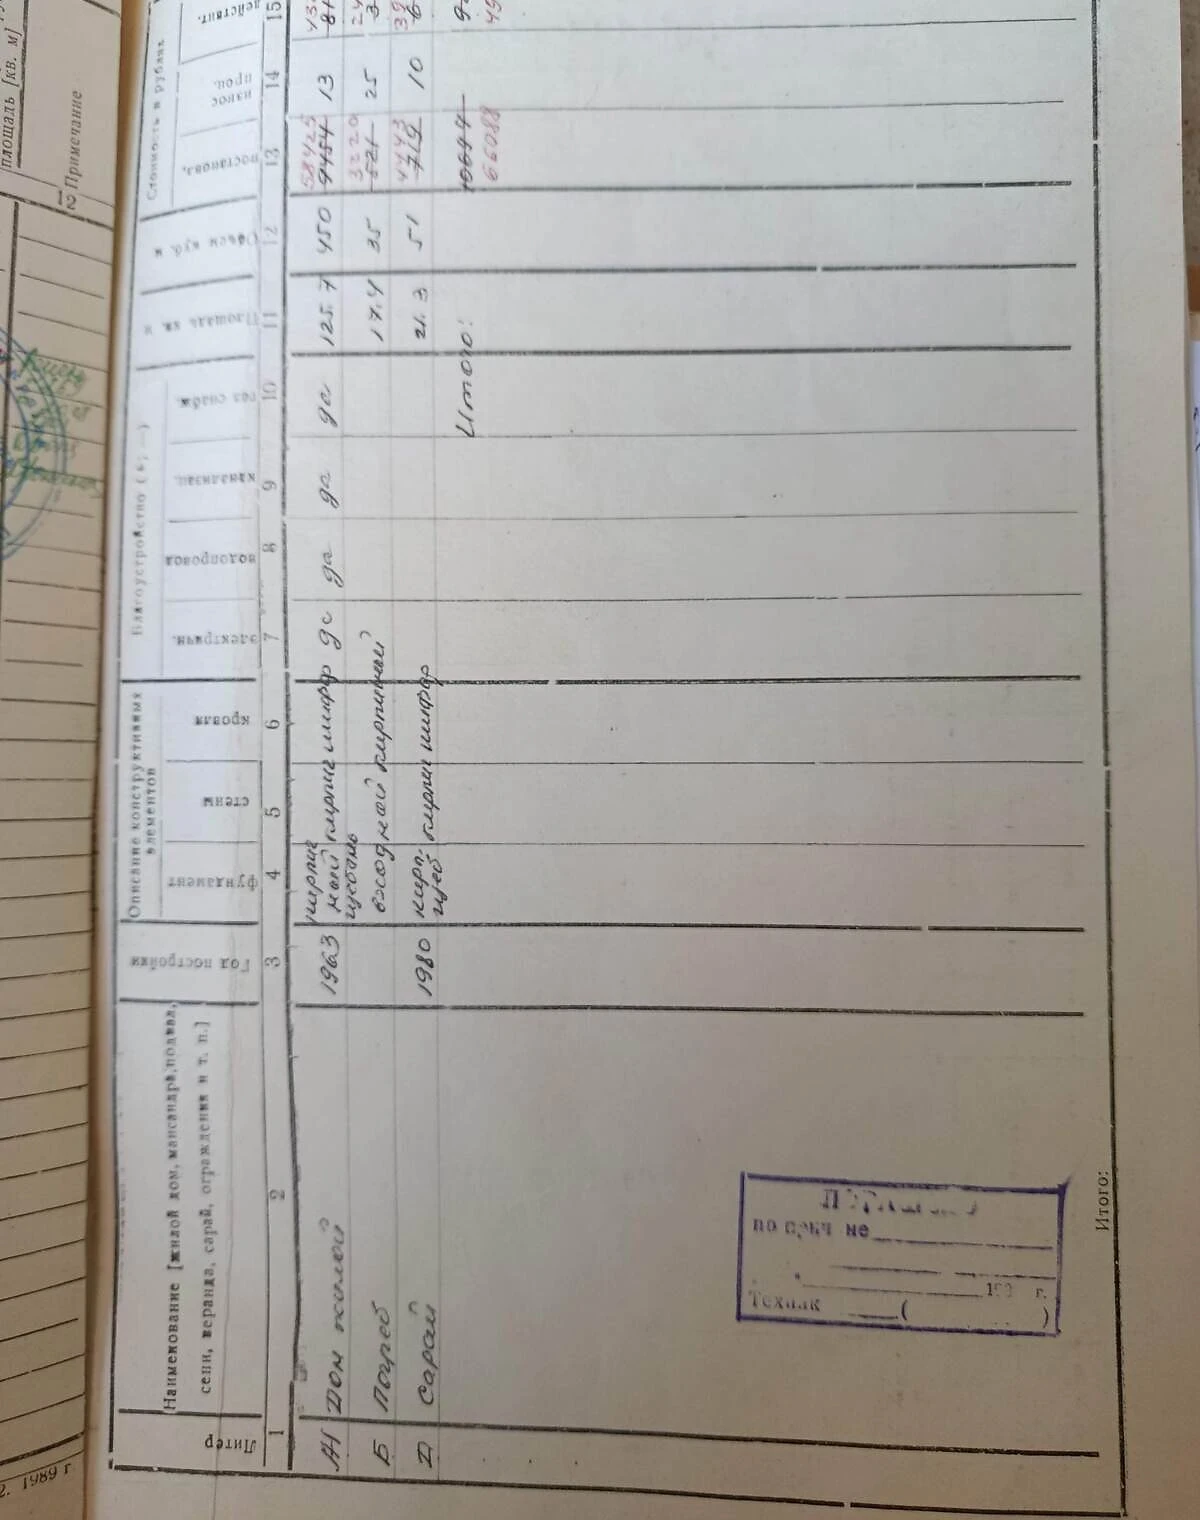 площадь [кв. м]
12 Примечание
2. 1989 г
Литер
Наименование [жилой дом, мансандра, подвал,
сени, веранда, сарай, ограждения и т. п.]
Год постройки
Описание конструктивных
элементов
фундамент
стены
кровля
Благоустройство (+, —)
электричн.
водопровод
канализац.
газ снабж.
Площадь кв. м
Объем куб. м
Стоимость в рублях
востанов.
износ
проц.
действит.
1 2 3 4 5 6 7 8 9 10 11 12 13 14 15
58425
Дом жилой 1963 кирпич шифер да да да да 125.7 450 9454 13
щебень
3220
Б Погреб входной кирпичный 17.4 35 521 25
4443
Д Сарай 1980 кирп. кирпич шифер 21.3 51 719 10
щеб
Итого:
66088
по
Техник ( )
г.
Итого: